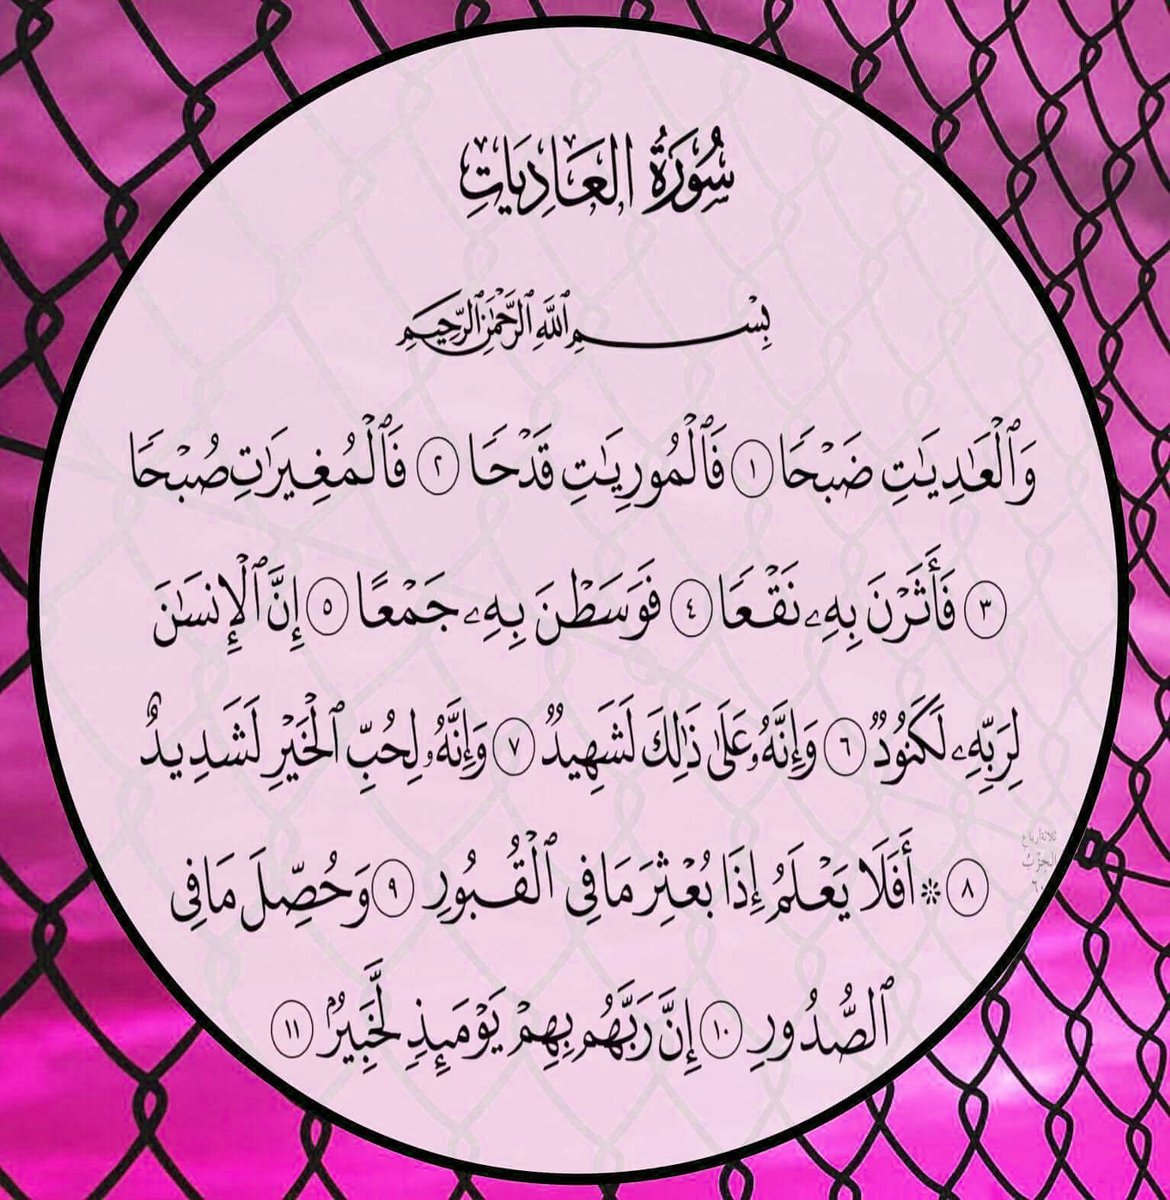 سُورَةُ العَادِيَاتِ
بِسْمِ ٱللَّهِ ٱلرَّحْمَٰنِ ٱلرَّحِيمِ
وَٱلْعَٰدِيَٰتِ ضَبْحًا ١ فَٱلْمُورِيَٰتِ قَدْحًا ٢ فَٱلْمُغِيرَٰتِ صُبْحًا
٣ فَأَثَرْنَ بِهِۦ نَقْعًا ٤ فَوَسَطْنَ بِهِۦ جَمْعًا ٥ إِنَّ ٱلْإِنسَٰنَ
لِرَبِّهِۦ لَكَنُودٌ ٦ وَإِنَّهُۥ عَلَىٰ ذَٰلِكَ لَشَهِيدٌ ٧ وَإِنَّهُۥ لِحُبِّ ٱلْخَيْرِ لَشَدِيدٌ
٨ ۞ أَفَلَا يَعْلَمُ إِذَا بُعْثِرَ مَا فِى ٱلْقُبُورِ ٩ وَحُصِّلَ مَا فِى
ٱلصُّدُورِ ١٠ إِنَّ رَبَّهُم بِهِمْ يَوْمَئِذٍ لَّخَبِيرٌ ١١
ثلاثة أرباع
الحزب
٦٠